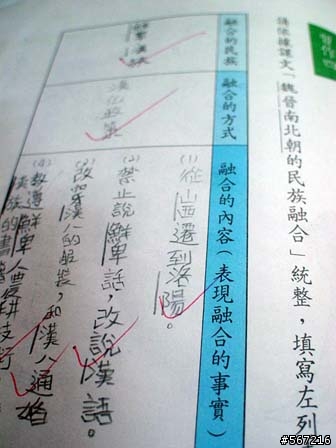 請依據課文「魏晉南北朝的民族融合」統整，填寫左列
融合的民族
融合的方式
融合的內容（表現融合的事實）
漢化政策
(1)從山西遷到洛陽。
(2)禁止說鮮卑話，改說漢語。
改穿漢人的服裝，和漢人通婚
(4)教導鮮卑人農耕技
#567216